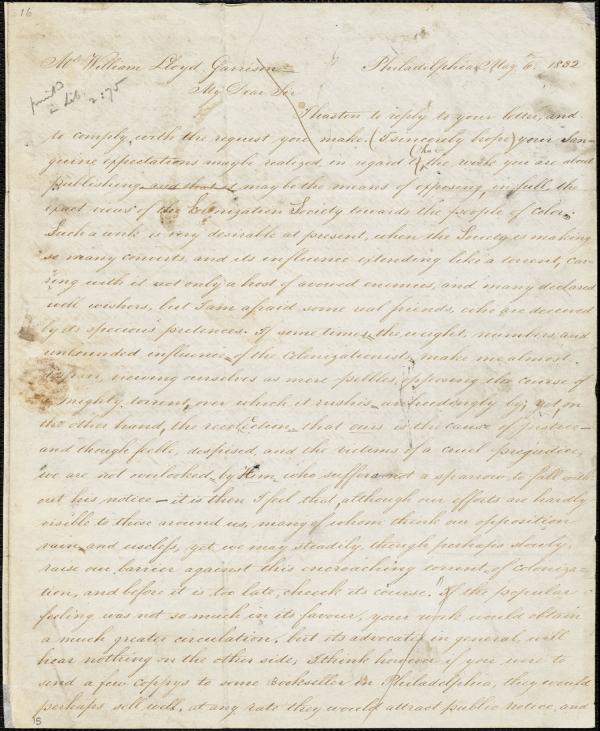 16
Mr William Lloyd Garrison Philadelphia May 6th 1832
My Dear Sir
print'd
in Lib.
2:75
I hasten to reply to your letter, and
to comply with the request you make. (I sincerely hope) your San-
guine expectations maybe realized, in regard to the work you are about
publishing and that it may be the means of opposing, in full the
exact views of the Colonization Society towards the people of Color.
Such a work is very desirable at present, when the Society is making
so many converts, and its influence extending like a torrent, car-
ring with it not only a host of avowed enemies, and many declared
well wishers, but I am afraid some real friends, who are deceived
by its specious pretences. If some times the weight, numbers and
unbounded influence of the Colonizationists, make me almost
viewing ourselves as mere pebbles opposing the course of
a mighty torrent, over which it rushes unheedingly by; yet, on
the other hand, the recollection that ours is the cause of justice
and though feeble, despised, and the victims of a cruel prejudice,
we are not overlooked by Him who suffers not a sparrow to fall with
out his notice — it is then I feel that, although our efforts are hardly
visible to those around us, many of whom think our opposition
vain and useless, yet we may steadily, though perhaps slowly,
raise our barrier against this encroaching torrent of Coloniza-
tion, and before it is too late, check its course. If the popular
feeling was not so much in its favour, your work would obtain
a much greater circulation, but its advocates in general will
hear nothing on the other side, I think however if you were to
send a few coppys to some Bookseller in Philadelphia, they would
perhaps sell well, at any rate they would attract public notice, and
15